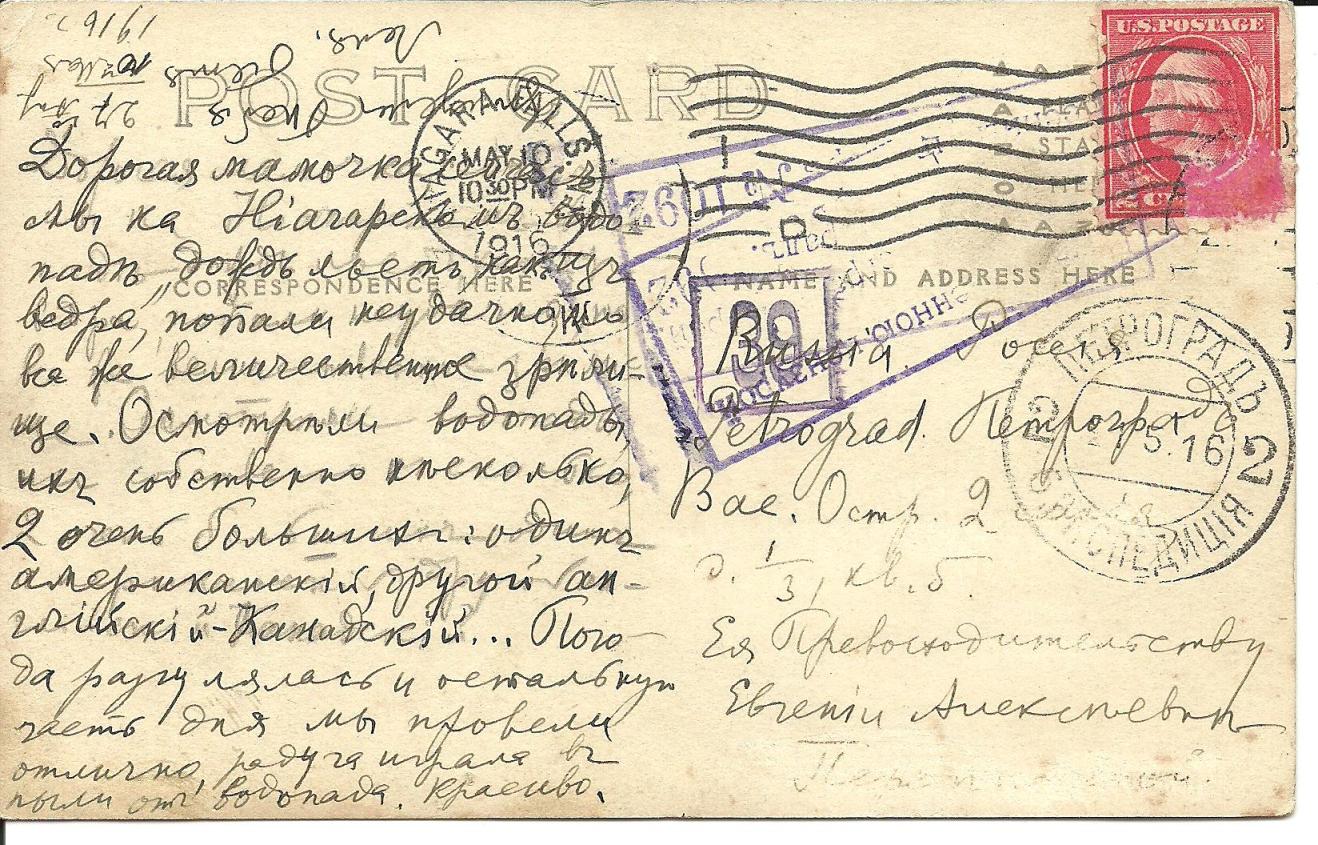 1916 г.
27 Апр
10 Мая
тебя
Лена.
POST CARD
U.S. POSTAGE
NIAGARA FALLS.
MAY 10
10 30 PM
1916
Дорогая мамочка сейчасъ
мы на Ніагарскомъ водо-
падѣ, дождь льетъ какъ изъ
ведра, попали неудачно, но
все же величественное зрѣли-
ще. Осмотрѣли водопады,
ихъ собственно нѣсколько,
2 очень большихъ: одинъ
американскій, другой ан-
глійскій-Канадскій... Пого-
да разгулялась и остальную
часть дня мы провели
отлично, радуга играла въ
пыли отъ водопада. Красиво.
CORRESPONDENCE HERE
NAME AND ADDRESS HERE
39
Russia Россія
Petrograd. Петроградъ
Вас. Остр. 2
д. 1/3, кв. 5.
Ея Превосходительству
Евгеніи Алексѣевнѣ
ПЕТРОГРАДЪ
5.16
2 2
ЭКСПЕДИЦІЯ